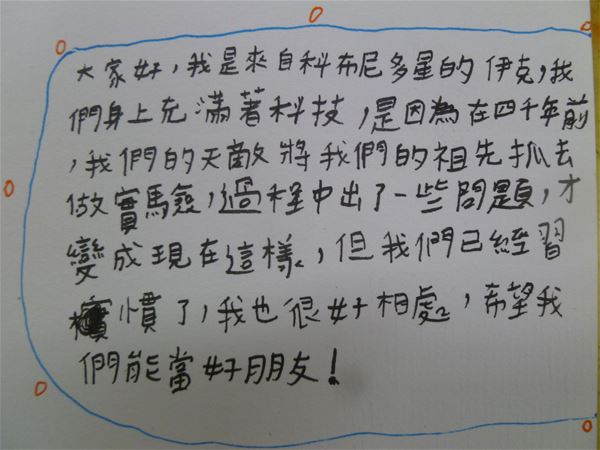 大家好，我是來自科布尼多星的伊克，我
們身上充滿著科技，是因為在四千年前
，我們的天敵將我們的祖先抓去
做實驗，過程中出了一些問題，才
變成現在這樣，但我們已經習
慣了，我也很好相處，希望我
們能當好朋友！